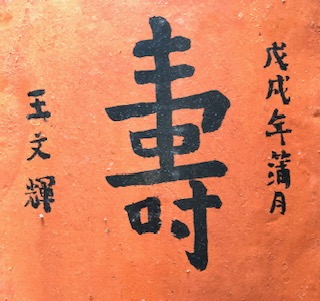 戊戌年蒲月
壽
王文輝